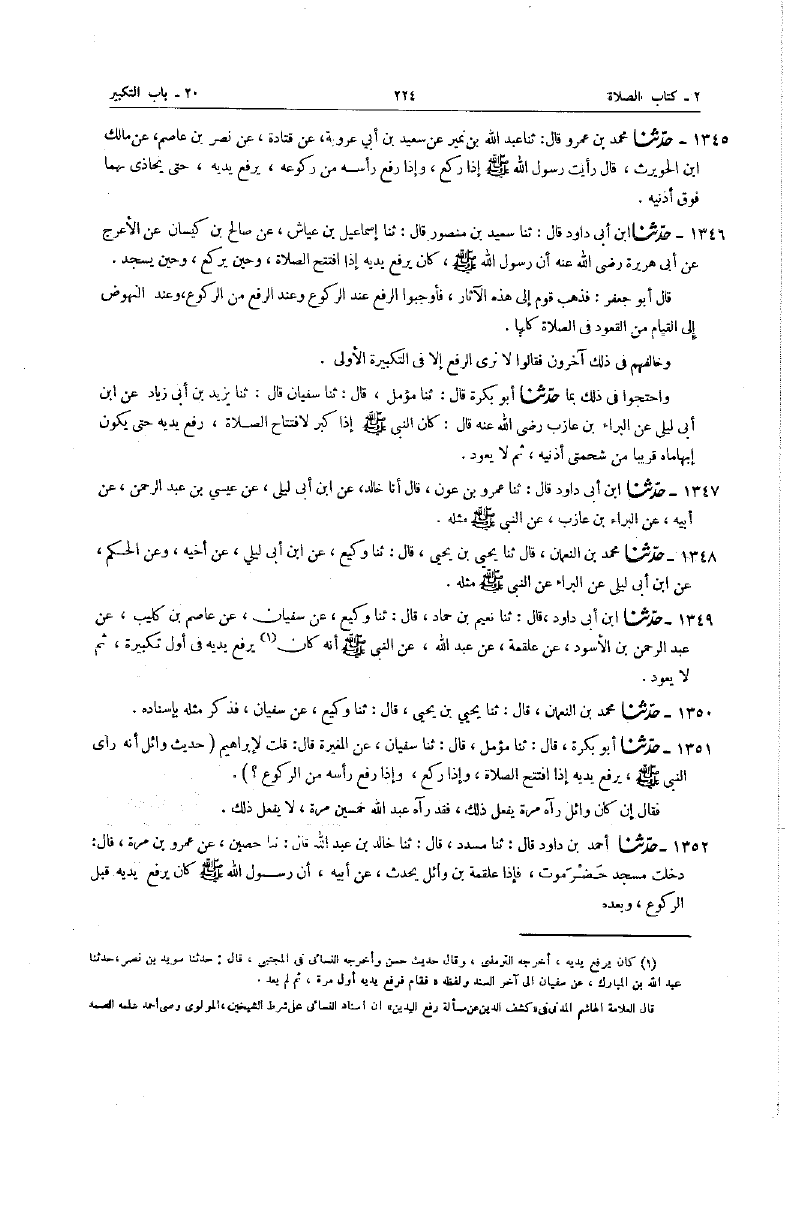 ٢ - كتاب الصلاة ٢٢٤ ٢٠ - باب التكبير
١٣٤٥ - حدّثنا محمد بن عمرو قال: ثنا عبد الله بن نمير عن سعيد بن أبي عروبة، عن قتادة ، عن نصر بن عاصم، عن مالك
ابن الحويرث ، قال رأيت رسول الله ﷺ إذا ركع ، وإذا رفع رأسه من ركوعه ، يرفع يديه ، حتى يحاذى بهما
فوق أذنيه .
١٣٤٦ - حدّثنا ابن أبى داود قال : ثنا سعيد بن منصور قال : ثنا إسماعيل بن عياش ، عن صالح بن كيسان عن الأعرج
عن أبى هريرة رضى الله عنه أن رسول الله ﷺ ، كان يرفع يديه إذا افتتح الصلاة ، وحين يركع ، وحين يسجد .
قال أبو جعفر : فذهب قوم إلى هذه الآثار ، فأوجبوا الرفع عند الركوع وعند الرفع من الركوع،وعند النهوض
إلى القيام من القعود فى الصلاة كلها .
وخالفهم فى ذلك آخرون فقالوا لا نرى الرفع إلا فى التكبيرة الأولى .
واحتجوا فى ذلك بما حدّثنا أبو بكرة قال : ثنا مؤمل ، قال : ثنا سفيان قال : ثنا يزيد بن أبى زياد عن ابن
أبى ليلى عن البراء بن عازب رضى الله عنه قال : كان النبي ﷺ إذا كبر لافتتاح الصلاة ، رفع يديه حتى يكون
إبهاماه قريبا من شحمتى أذنيه ، ثم لا يعود .
١٣٤٧ - حدّثنا ابن أبى داود قال : ثنا عمرو بن عون ، قال أنا خالد، عن ابن أبى ليلى ، عن عيسي بن عبد الرحمن ، عن
أبيه ، عن البراء بن عازب ، عن النبى ﷺ مثله .
١٣٤٨ - حدّثنا محمد بن النعمان ، قال ثنا يحيى بن يحيى ، قال : ثنا وكيع ، عن ابن أبى ليلي ، عن أخيه ، وعن الحكم ،
عن ابن أبى ليلى عن البراء عن النبي ﷺ مثله .
١٣٤٩ - حدّثنا ابن أبى داود ،قال : ثنا نعيم بن حماد ، قال : ثنا وكيع ، عن سفيان ، عن عاصم بن كليب ، عن
عبد الرحمن بن الأسود ، عن علقمة ، عن عبد الله ، عن النبى ﷺ أنه كان (١) يرفع يديه فى أول تكبيرة ، ثم
لا يعود .
١٣٥٠ - حدّثنا محمد بن النعمان ، قال : ثنا يحيي بن يحيي ، قال : ثنا وكيع ، عن سفيان ، فذكر مثله بإسناده .
١٣٥١ - حدّثنا أبو بكرة ، قال : ثنا مؤمل ، قال : ثنا سفيان ، عن المغيرة قال: قلت لإبراهيم ( حديث وائل أنه رأى
النبي ﷺ ، يرفع يديه إذا افتتح الصلاة ، وإذا ركع ، وإذا رفع رأسه من الركوع ؟ ) .
فقال إن كان وائل رآه مرة يفعل ذلك ، فقد رآه عبد الله خمسين مرة ، لا يفعل ذلك .
١٣٥٢ - حدّثنا أحمد بن داود قال : ثنا مسدد ، قال : ثنا خالد بن عبد الله قال : ثنا حصين ، عن عمرو بن مرة ، قال:
دخلت مسجد حَضْرَموت ، فإذا علقمة بن وائل يحدث ، عن أبيه ، أن رسول الله ﷺ كان يرفع يديه قبل
الركوع ، وبعده
(١) كان يرفع يديه ، أخرجه الترمذى ، وقال حديث حسن وأخرجه النسائى فى المجتبى ، قال : حدثنا سويد بن نصر،حدثنا
عبد الله بن المبارك ، عن سفيان الى آخر السند ولفظه « فقام فرفع يديه أول مرة ، ثم لم يعد .
قال العلامة الهاشم المدنى فى «كشف الدين عن مسألة رفع اليدين» ان اسناد النسائى على شرط الشيخين ،المولوى وصى أحمد سلمه الصمد